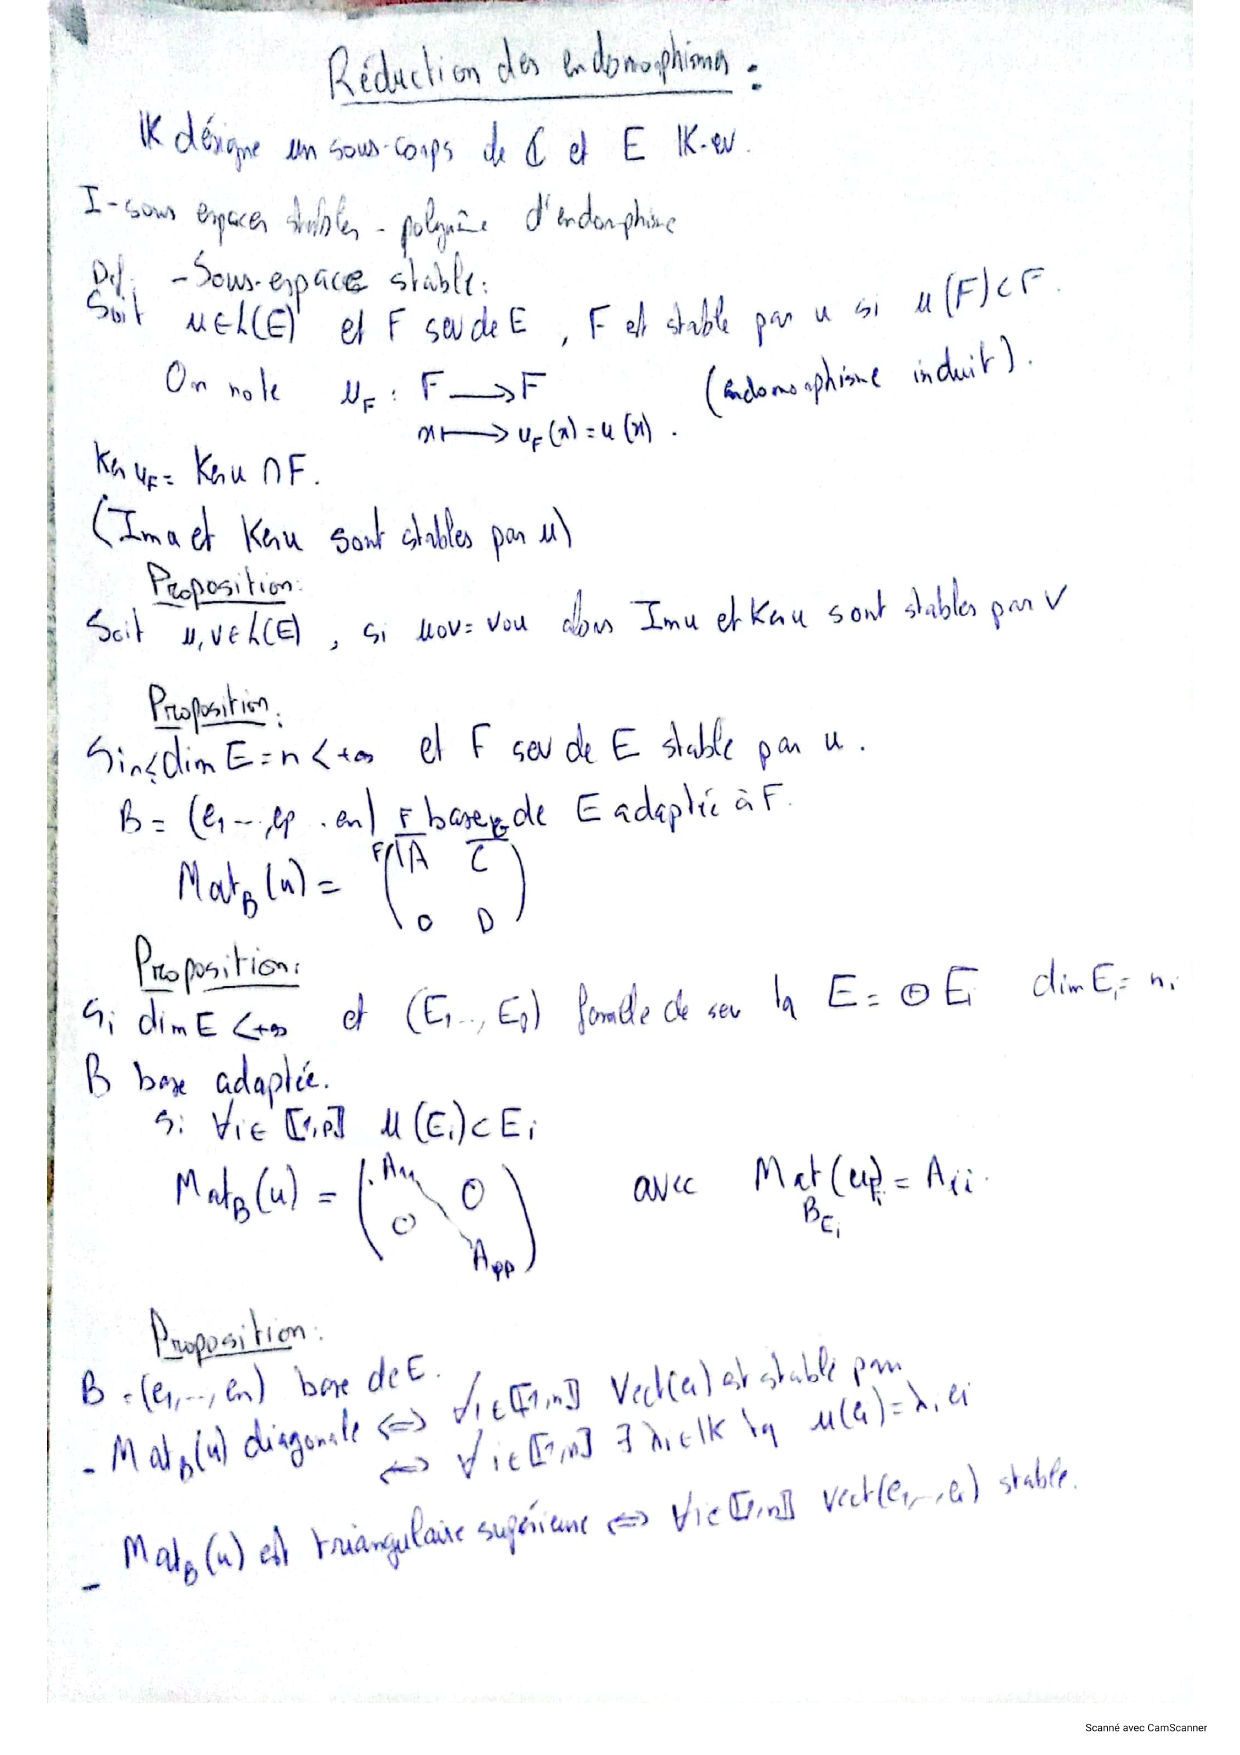 Réduction des endomorphismes :
IK désigne un sous-corps de ℂ et E IK-ev.
I- sous espaces stables - polynôme d'endorphisme
Def. - Sous-espace stable :
Soit u∈L(E) et F sev de E, F est stable par u si u(F)⊂F.
On note u_F : F ⟶ F (endomorphisme induit).
x ⟼ u_F(x) = u(x).
Ker u_F = Ker u ∩ F.
(Im u et Ker u sont stables par u)
Proposition :
Soit u,v∈L(E), si uov = vou alors Im u et Ker u sont stables par v
Proposition :
Si n≤dim E = n < +∞ et F sev de E stable par u.
B = (e₁ --, ep . en) base de E adaptée à F.
Mat_B(u) = ( A C
0 D )
Proposition :
Si dim E < +∞ et (E₁ .., Ep) famille de sev tq E = ⊕ Ei dim Ei = ni
B base adaptée.
Si ∀i∈⟦1,p⟧ u(Ei)⊂Ei
Mat_B(u) = ( A₁₁ 0
0 App ) avec Mat_{B_{Ei}}(u_{Ei}) = Aii.
Proposition :
B = (e₁, .., en) base de E.
- Mat_B(u) diagonale ⟺ ∀i∈⟦1,n⟧ Vect(ei) est stable par
⟺ ∀i∈⟦1,n⟧ ∃ λi∈IK tq u(ei) = λi ei
- Mat_B(u) est triangulaire supérieure ⟺ ∀i∈⟦1,n⟧ Vect(e₁, .., ei) stable.
Scanné avec CamScanner